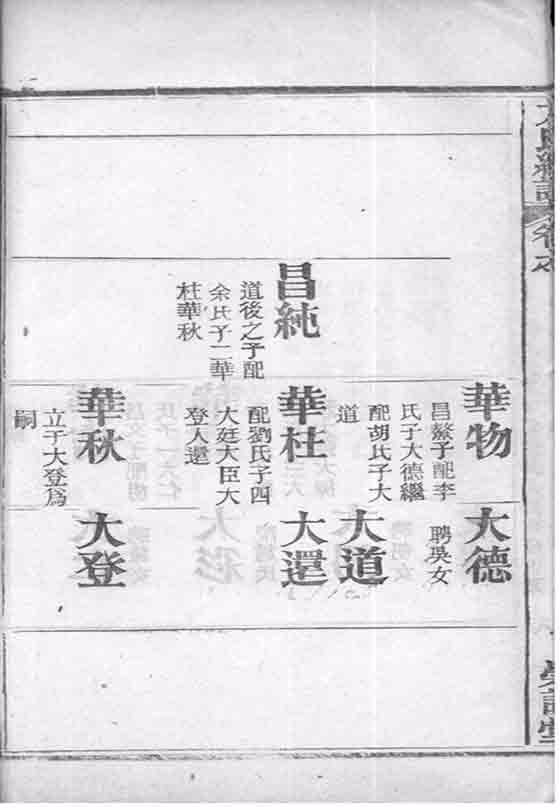 昌純
道後之子配
余氏子二華
杜華秋
華物
昌鰲子配李
氏子大德繼
配胡氏子大
道
華杜
配劉氏子四
大廷大臣大
登人還
華秋
立子大登爲
嗣
大德
聘吳女
大道
大還
大登